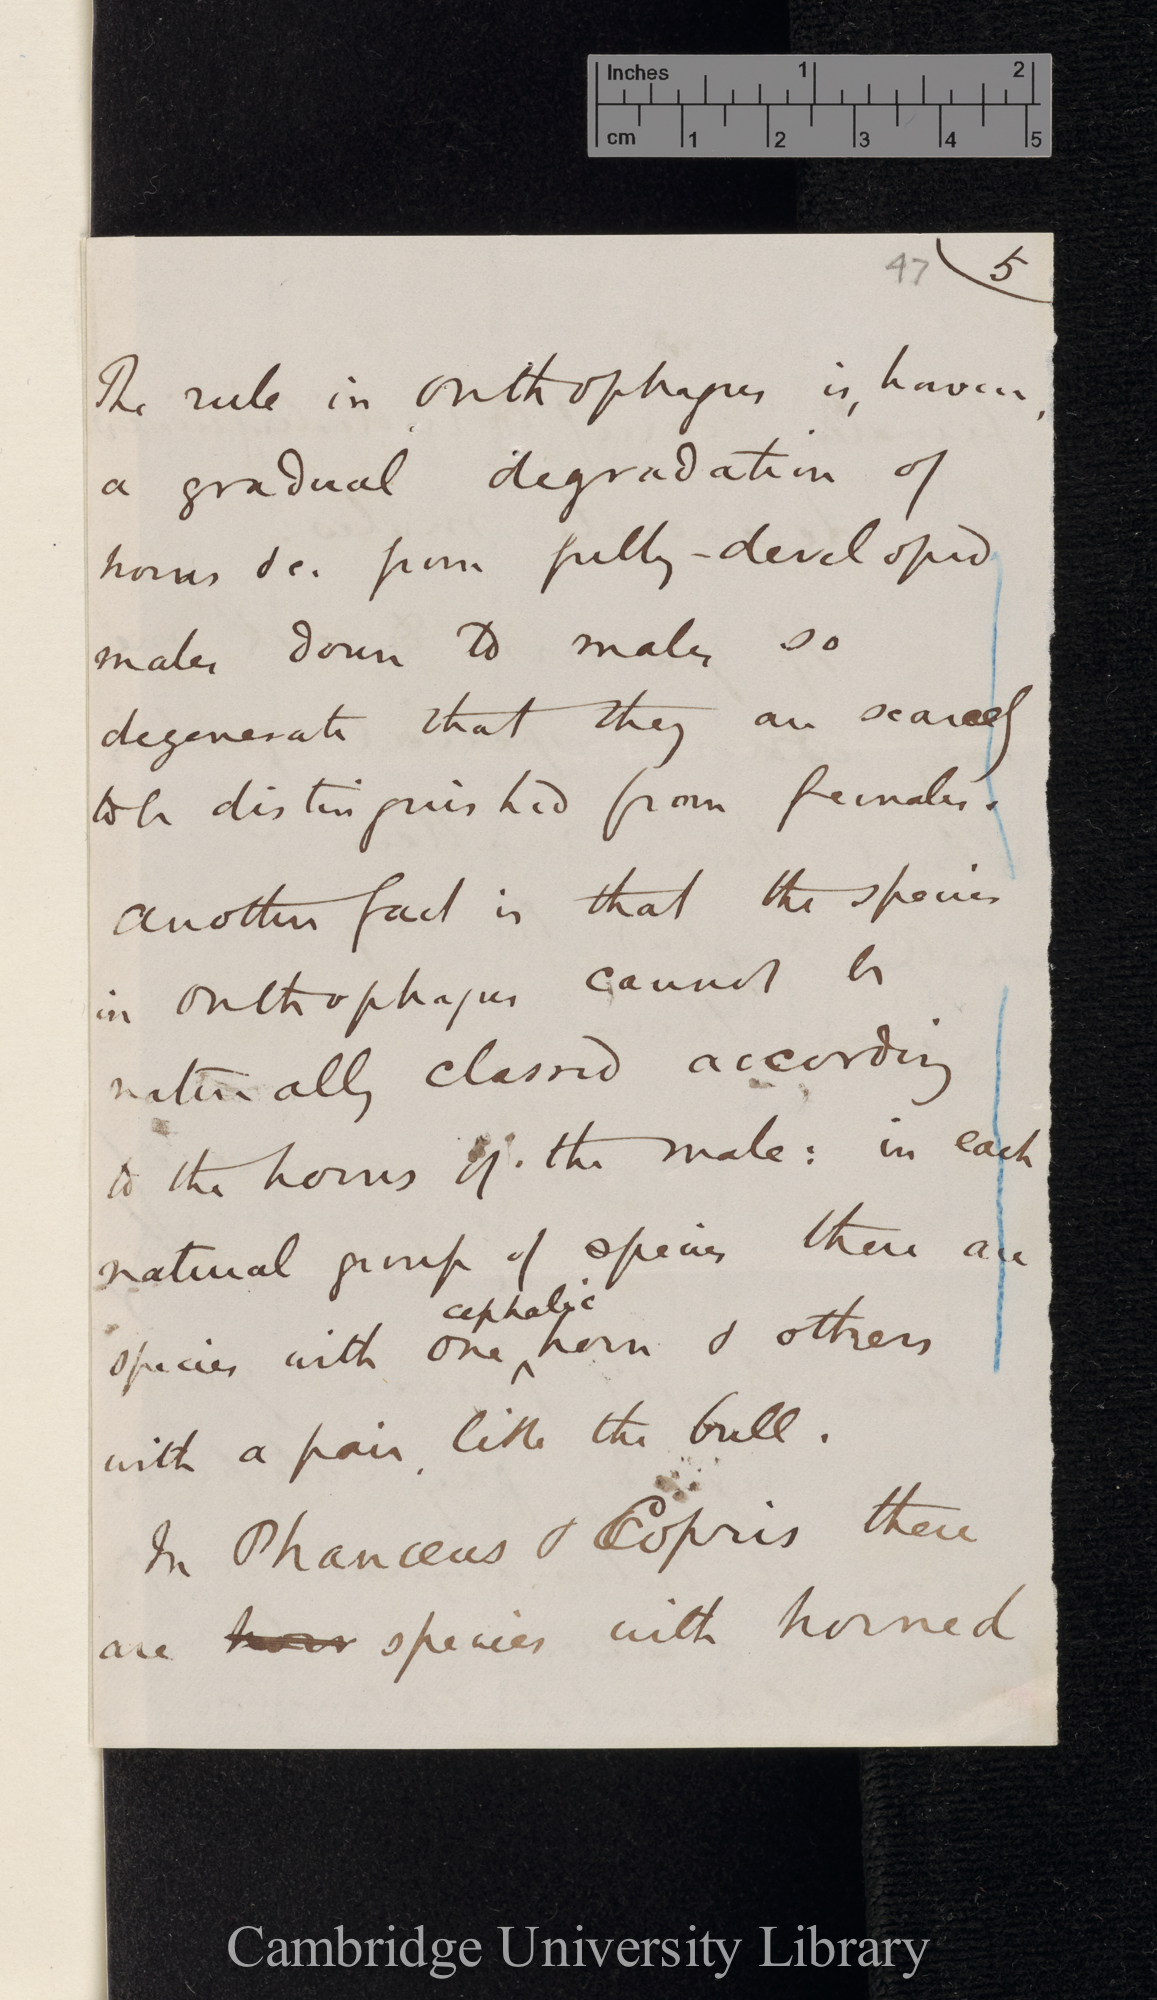 Inches 1 2
cm 1 2 3 4 5
47 5
The rule in Onthophagus is, however,
a gradual degradation of
horns &c. from fully-developed
males down to males so
degenerate that they are scarcely
to be distinguished from females.
Another fact is that the species
in Onthophagus cannot be
naturally classed according
to the horns of the male: in each
natural group of species there are
cephalic
species with one ^ horn & others
with a pair, like the bull.
In Phanæus & Copris there
are horn species with horned
Cambridge University Library